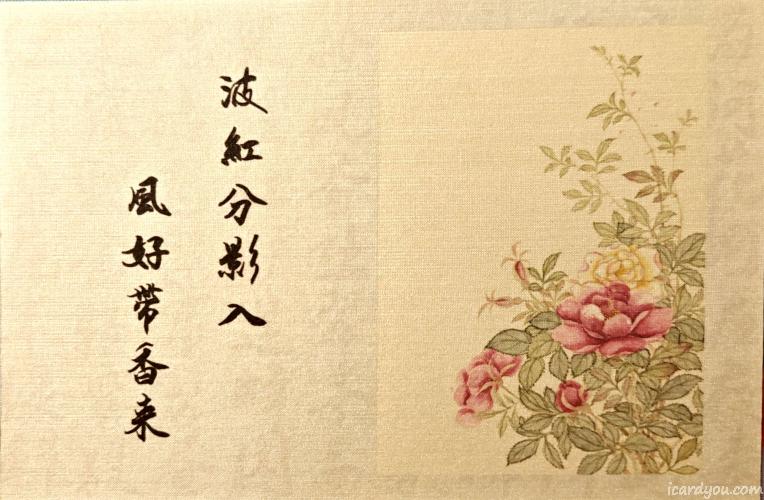 波紅分影入
風好帶香来
icardyou.com